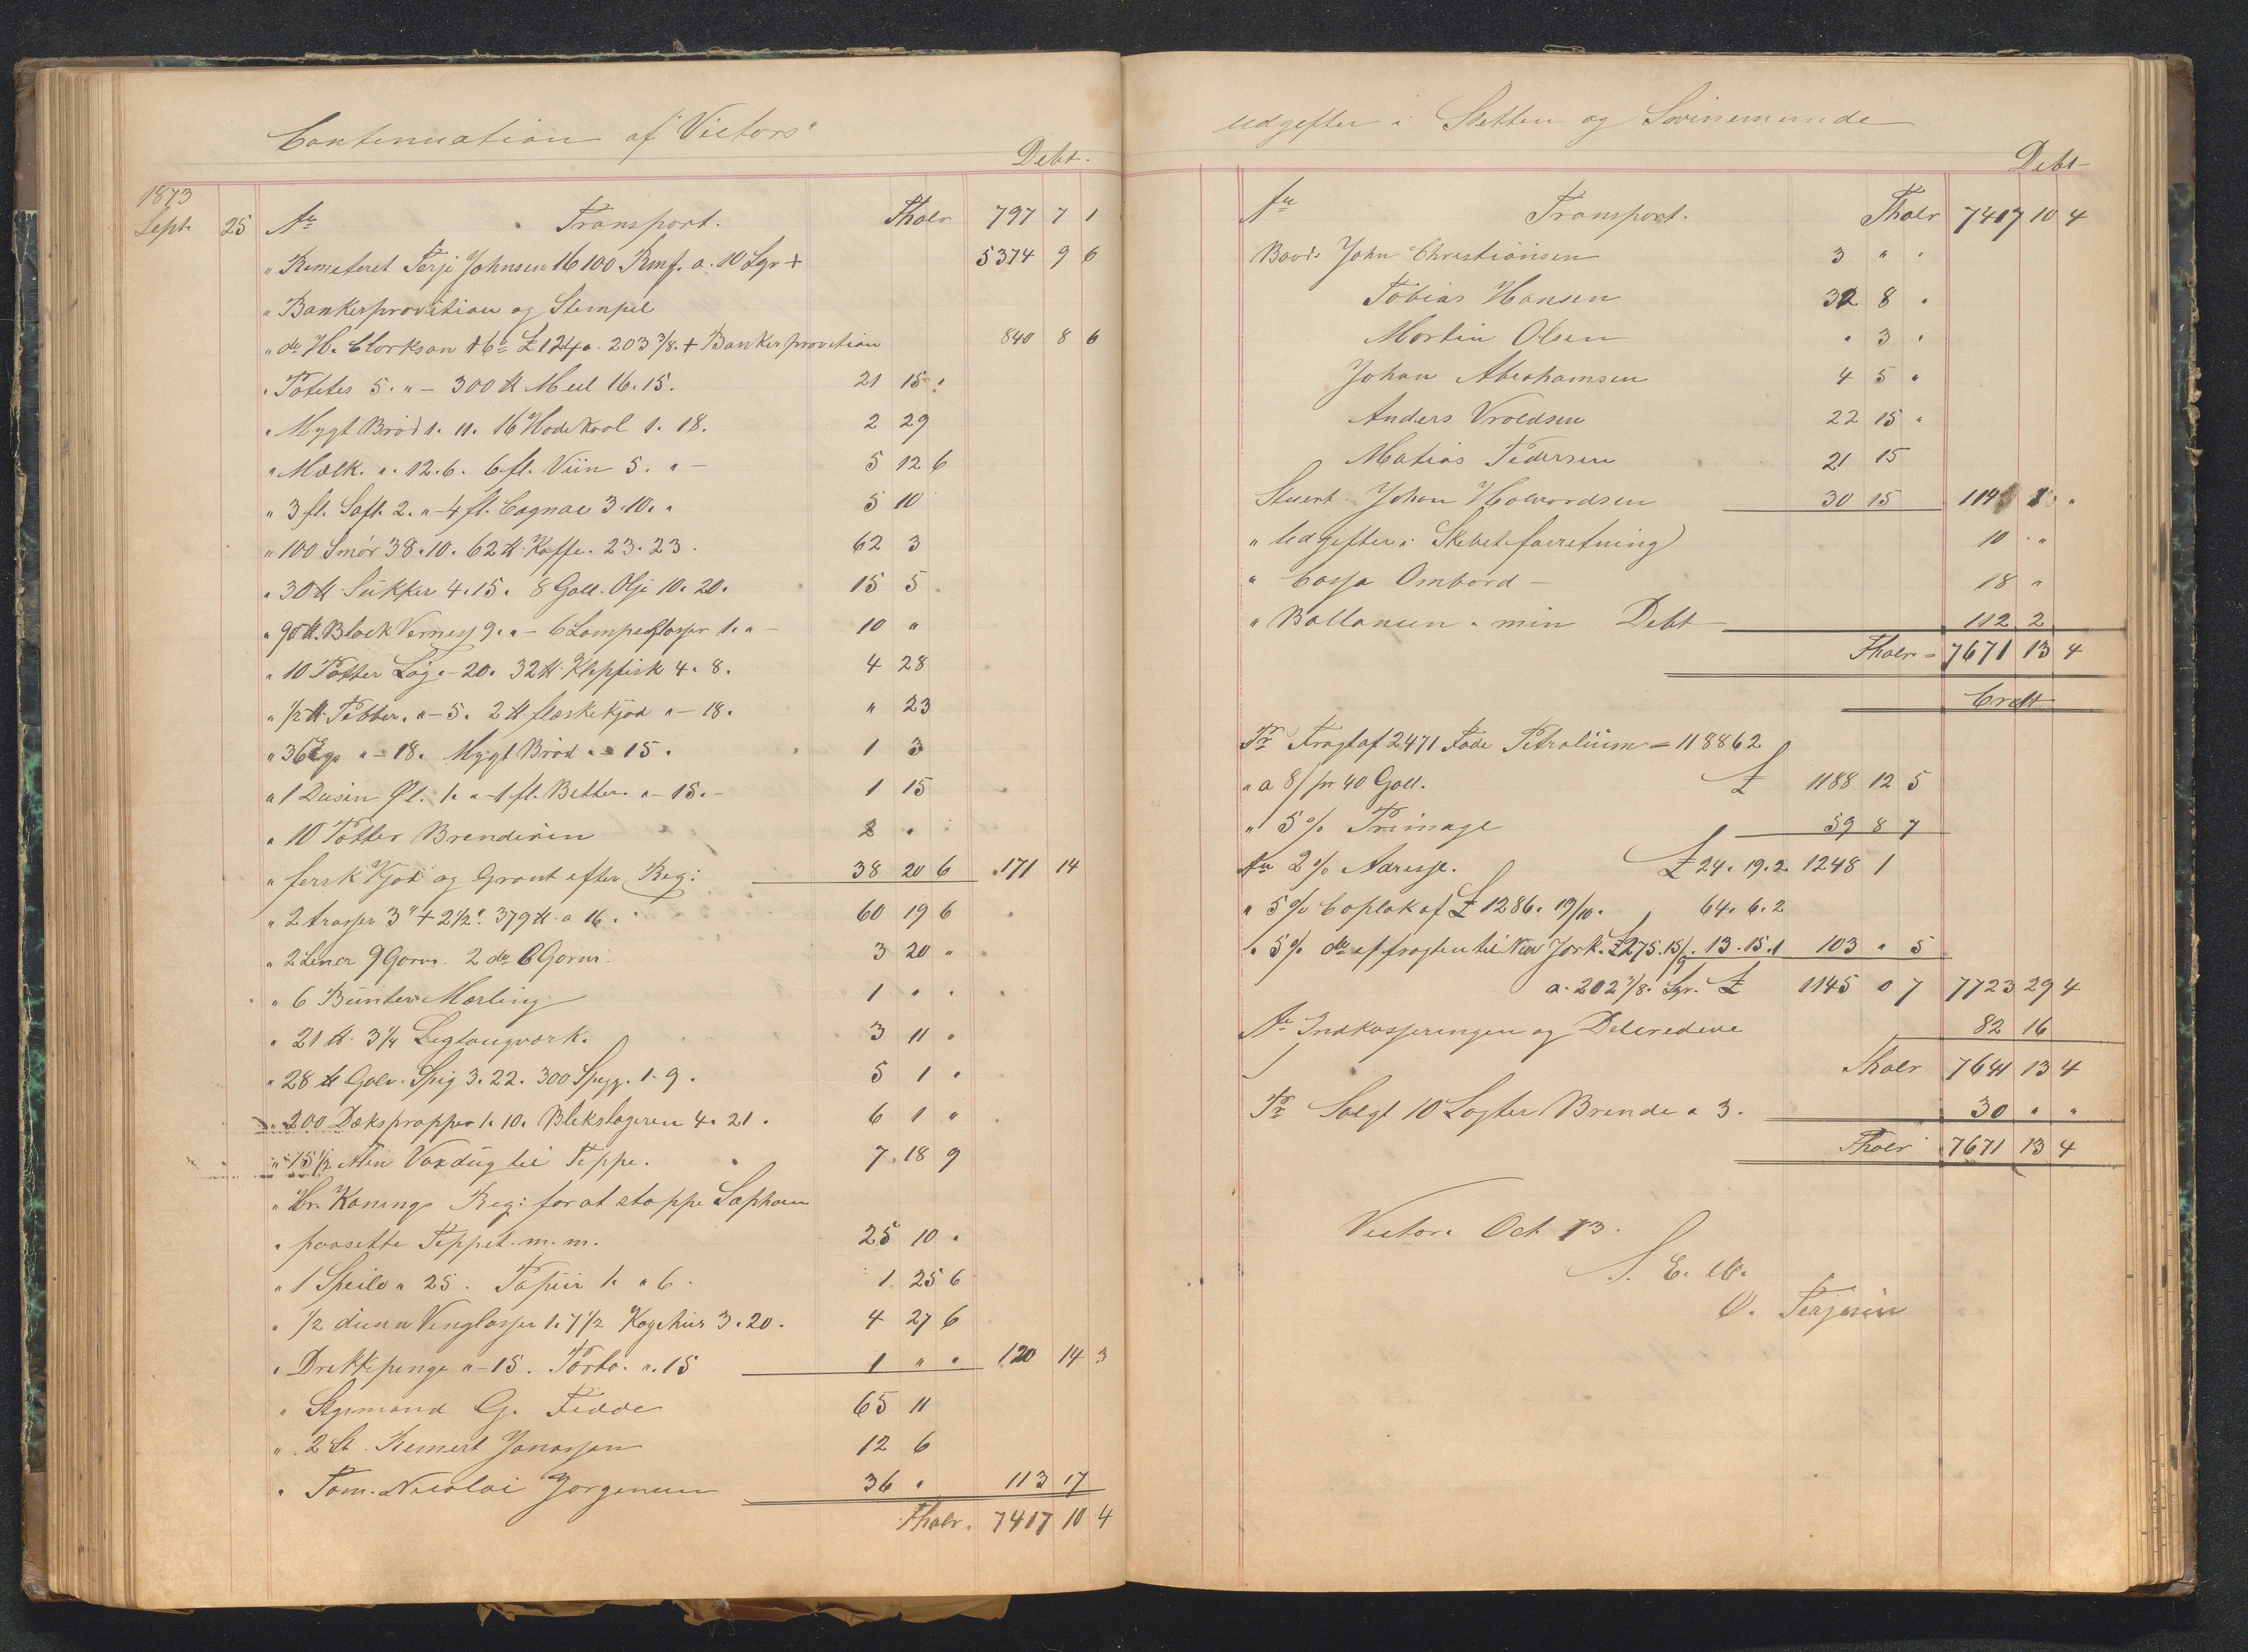 Continuation af "Victors"
Debt.
1873
Sept. 25 An Transport. Thalr 797 7 1
" Remeteret Terje Johnsen 16100 Rmf. a. 10 Sgr + 5374 9 6
" Bankerprovition og Stempel
" do H. Clarkson & Co £ 124 a. 203 3/8. + Bankerprovition 840 8 6
" Potetes 5. " – 300 ℔ Meel 16. 15. 21 15 "
" Mygt Brød 1. 11. 16 Hodekaal 1. 18. 2 29
" Mælk. ". 12. 6. 6 fl. Viin 5. " – 5 12 6
" 3 fl. Saft. 2. " – 4 fl. Cognac 3. 10. " 5 10
" 100 Smør 38. 10. 62 ℔ Kaffe. 23. 23. 62 3
" 30 ℔ Sukker 4. 15. 8 Gall. Olje 10. 20. 15 5
" 90 ℔. Black Verness 9. " – 6 Lampeglasser 1. " – 10 "
" 10 Potter Løg " – 20. 32 ℔ Klepfisk 4. 8. 4 28
" 1/2 ℔ Pebber. " – 5. 2 ℔ flæskekjød " – 18. " 23
" 36 Egs " – 18. Mygt Brød " – 15. 1 3
" 1 Dusin Øl. 1. " – 1 fl. Better. " – 15. – 1 15
" 10 Potter Brendeviin 2 "
" fersk Kjød og Grønt efter Reg: 38 20 6 171 14
" 2 trosser 3" + 2 1/2". 379 ℔ a 16. 60 19 6
" 2 Liner 9 Garns. 2 do 6 Garns. 3 20 "
" 6 Bunter Mærling 1 " "
" 21 ℔ 3 1/4 Ligtougværk. 3 11 "
" 28 ℔ Galv. Spig 3. 22. 300 Spigg. 1. 9. 5 1 "
" 200 Dæksproppes 1. 10. Blekslageren 4. 21. 6 1 "
" 15 1/2 Alen Voxdug til Teppe. 7 18 9
" Hr. Konings Reg: for at stoppe Saphaen
" paasette Teppet. m. m. 25 10 "
" 1 Speile " 25. Papiir 1. " 6. 1 25 6
" 1/2 dusin Venglasser 1. 7 1/2 Kogehus 3. 20. 4 27 6
" Drekkepenge " – 15. Porto. ". 15 1 " " 120 14 3
" Stgrmand G. Fedde 65 11
" 2 St. Remert Jonassen 12 6
" Tøm. Nicolai Jørgensen 36 " 113 17
Thalr. 7417 10 4
udgefter i Stetten og Svinemunde
Debt
An Transport. Thalr 7417 10 4
Baads John Christiansen 3 " "
Tobias Hansen 32 8 "
Martin Olsen " 3 "
Johan Abrahamsen 4 5 "
Anders Vroldsen 22 15 "
Matias Pedersen 21 15
Stuert. Johan Halvordsen 30 15 114 1 "
" Udgefter i Skebet forretning 10 "
" Cassa Ombord – 18 "
" Ballansen i min Debt 112 2
Thalr = 7671 13 4
Credt
Pr Fragt af 2471 Fade Petrolium = 118862
" a 8/ pr 40 Gall. £ 1188 12 5
" 5 % Primage 59 8 7
An 2 % Adresse. £ 24. 19. 2 1248 1
" 5 % Caplak af £ 1286. 19/10. 64. 6. 2
" 5 % do af fragten til New Jork. £ 275. 15/9. 13. 15. 1 103 " 5
a. 202 3/8. Sgr. £ 1145 0 7 7723 29 4
An Indkasseringen og Delcredere 82 16
Thalr 7641 13 4
Pr Solgt 10 Lagter Brende a 3. 30 " "
Thalr 7671 13 4
Victor. Oct 73.
S. E. &.
O. Terjesen